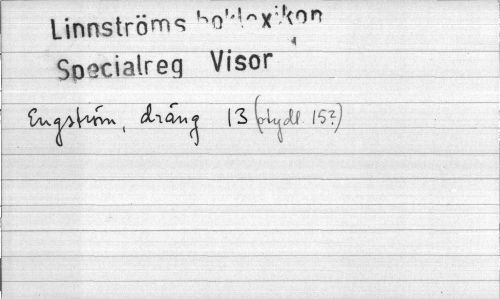 Linnströms boklexikon
Specialreg Visor
Engström, dräng 13 (otydl. 15?)